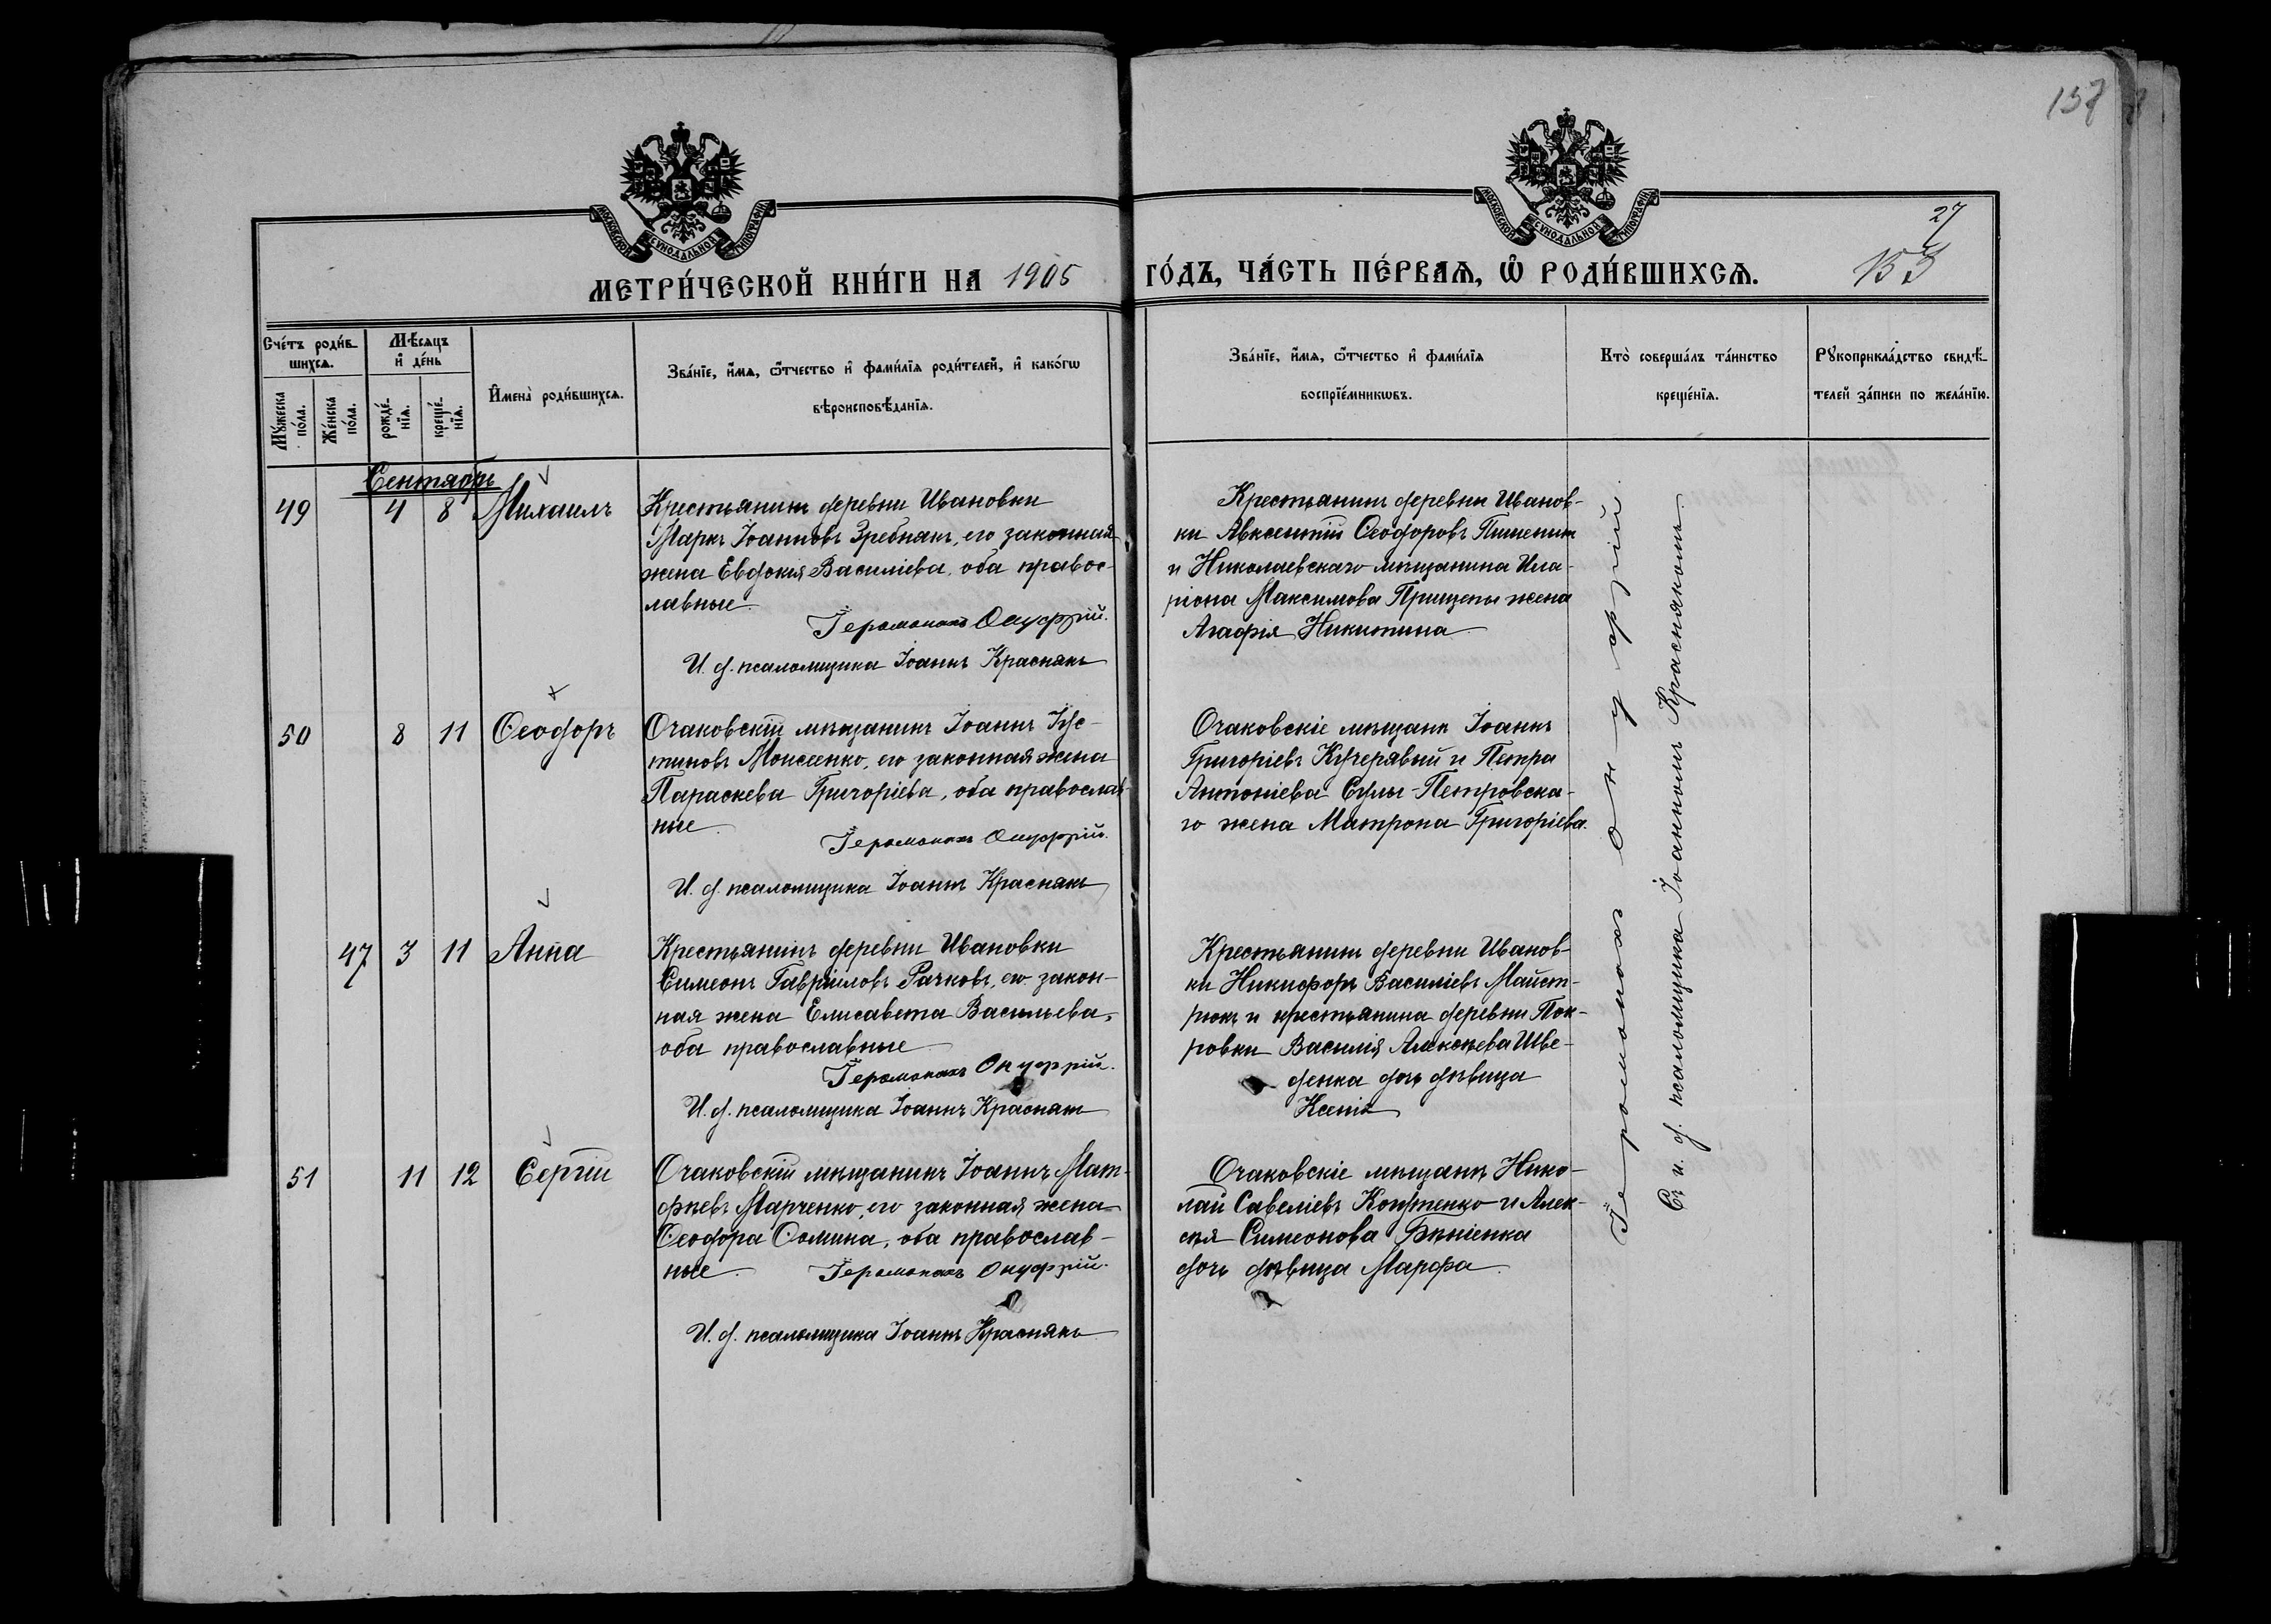 137
27
МОСКОВСКОЙ СѴНОДАЛЬНОЙ ТИПОГРАФІИ
МОСКОВСКОЙ СѴНОДАЛЬНОЙ ТИПОГРАФІИ
МЕТРИ́ЧЕСКОЙ КНИ́ГИ НА 1905 ГО́ДЪ, ЧА́СТЬ ПЕ́РВАѦ, Ѽ РОДИ́ВШИХСѦ.
Сче́тъ роди́в-
шихсѧ.
Мꙋ́жеска
по́ла.
Же́нска
по́ла.
Мѣ́сѧцъ
и҆ де́нь
рожде́-
нїѧ.
креще́-
нїѧ.
И҆мена̀ роди́вшихсѧ.
Зва́нїе, и҆́мѧ, ѻ҆́тчество и҆ фами́лїѧ роди́телей, и҆ како́гѡ
вѣроисповѣ́данїѧ.
Зва́нїе, и҆́мѧ, ѻ҆́тчество и҆ фами́лїѧ
воспрїе́мникѡвъ.
Кто̀ соверша́лъ та́инство
креще́нїѧ.
Рꙋкоприкла́дство свидѣ́-
телей за́писи по жела́нїю.
Сентябрь
49 4 8 Михаилъ
Крестьянинъ деревни Ивановки
Маркъ Іоанновъ Зребнякъ, его законная
жена Евдокія Василіева, оба правос-
лавные.
Іеромонахъ Онуфрій.
И. д. псаломщика Іоаннъ Краснякъ
Крестьянинъ деревни Иванов-
ки Авксентій Ѳеодоровъ
и Николаевскаго мѣщанина Ила-
ріона Максимова Прищепы жена
Агафія Никитина.
50 8 11 Ѳеодоръ
Очаковскій мѣщанинъ Іоаннъ Іус-
тиновъ Моисеенко, его законная жена
Параскева Григоріева, оба православ-
ные.
Іеромонахъ Онуфрій.
И. д. псаломщика Іоаннъ Краснякъ
Очаковскіе мѣщане Іоаннъ
Григоріевъ Кучерявый и Петра
Антоніева Сулы-Петровска-
го жена Матрона Григоріева.
47 3 11 Анна
Крестьянинъ деревни Ивановки
Симеонъ Гавріиловъ Рачковъ, его закон-
ная жена Елисавета Васильева,
оба православные
Іеромонахъ Онуфрій.
И. д. псаломщика Іоаннъ Краснякъ
Крестьянинъ деревни Иванов-
ки Никифоръ Василіевъ Майст-
рюкъ и крестьянина деревни Пок-
ровки Василія Алексѣева Шве-
денка дочь дѣвица
Ксенія
51 11 12 Сергій
Очаковскій мѣщанинъ Іоаннъ Мат-
ѳѣевъ Марченко, его законная жена
Ѳеодора Ѳомина, оба православ-
ные.
Іеромонахъ Онуфрій.
И. д. псаломщика Іоаннъ Краснякъ
Очаковскіе мѣщане Нико-
лай Савеліевъ и Алек-
сѣя Симеонова
дочь дѣвица Марфа.
Іеромонахъ Онуфрій.
Съ и. д. псаломщика Іоанномъ Краснякомъ.